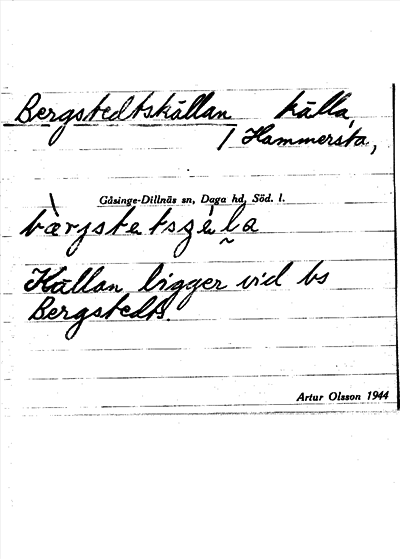 Bergstedtskällan källa,
/ Hammersta,
Gåsinge-Dillnäs sn, Daga hd, Söd. l.
bàrjstetsɕéla
Källan ligger vid bs
Bergstedts.
Artur Olsson 1944